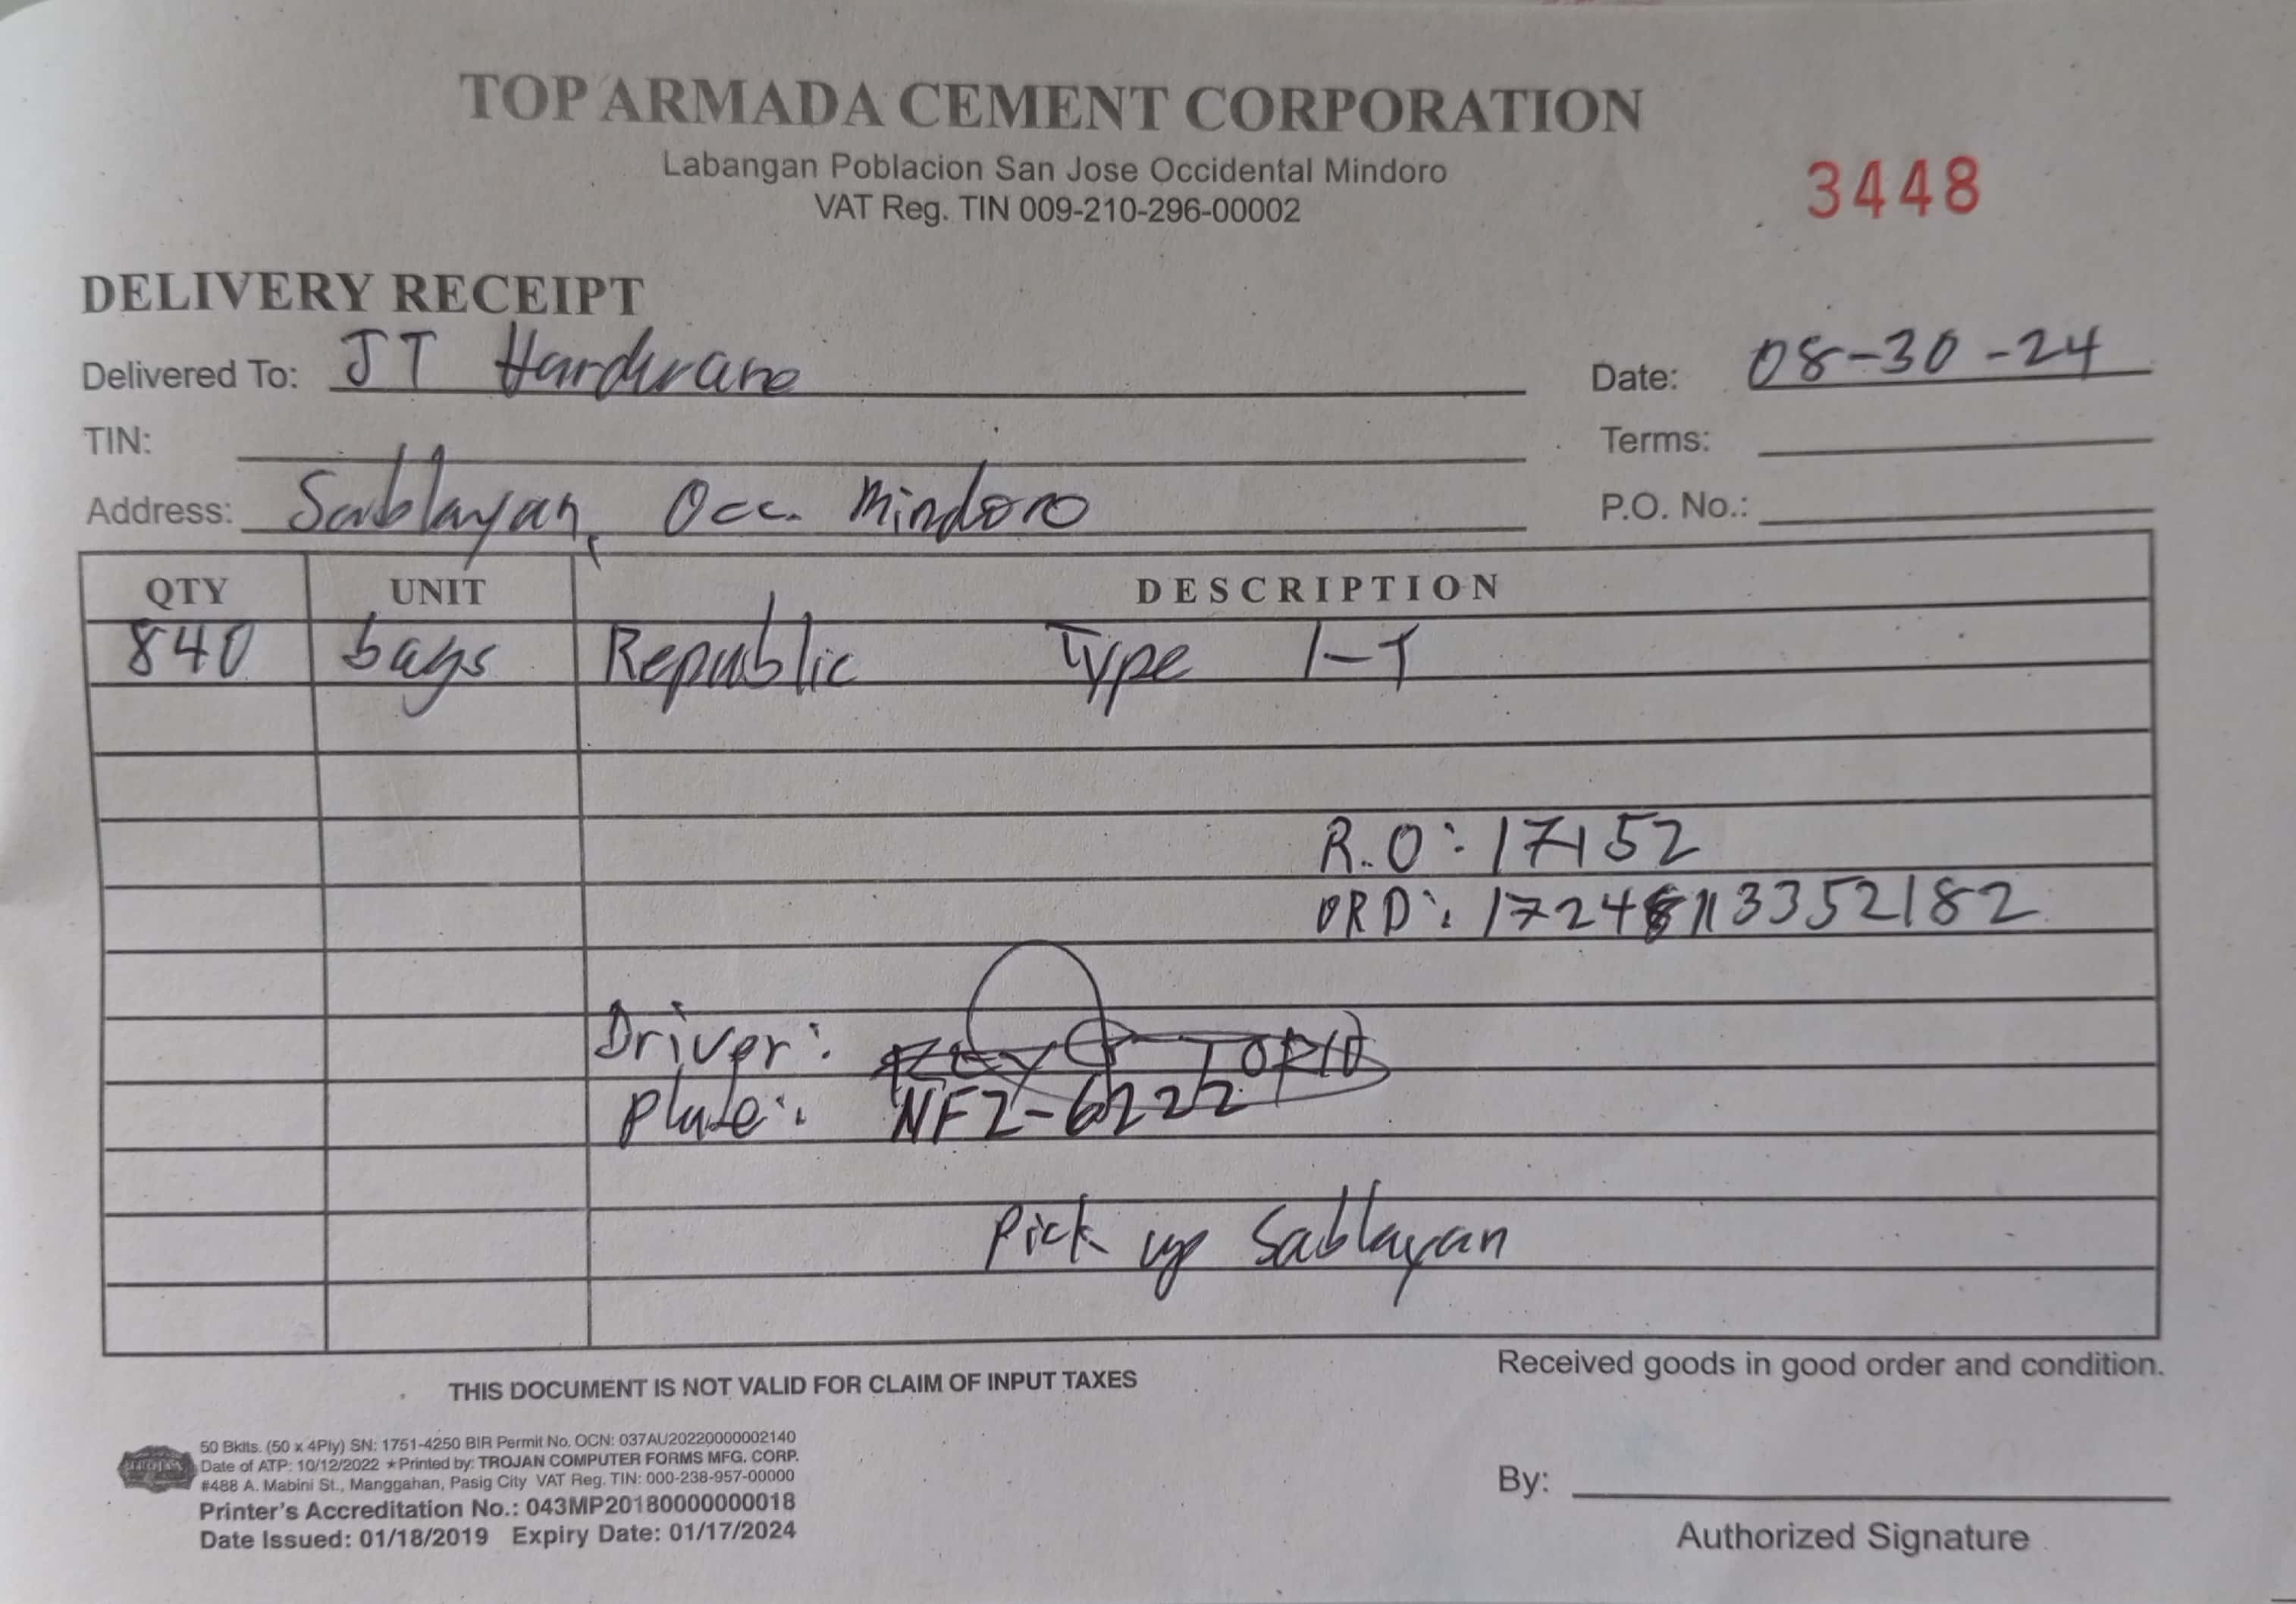 TOP ARMADA CEMENT CORPORATION
Labangan Poblacion San Jose Occidental Mindoro
VAT Reg. TIN 009-210-296-00002
3448
DELIVERY RECEIPT
Delivered To: JT Hardware
Date: 08-30-24
TIN:
Terms:
Address: Sablayan, Occ. Mindoro
P.O. No.:
QTY UNIT DESCRIPTION
840 bags Republic Type 1-T
R.O: 17152
ORD:
Driver:
Plate: NFZ-6222
Pick up Sablayan
THIS DOCUMENT IS NOT VALID FOR CLAIM OF INPUT TAXES
Received goods in good order and condition.
50 Bklts. (50 x 4Ply) SN: 1751-4250 BIR Permit No. OCN: 037AU20220000002140
Date of ATP: 10/12/2022 ★Printed by: TROJAN COMPUTER FORMS MFG. CORP.
#488 A. Mabini St., Manggahan, Pasig City VAT Reg. TIN: 000-238-957-00000
Printer's Accreditation No.: 043MP20180000000018
Date Issued: 01/18/2019 Expiry Date: 01/17/2024
By:
Authorized Signature